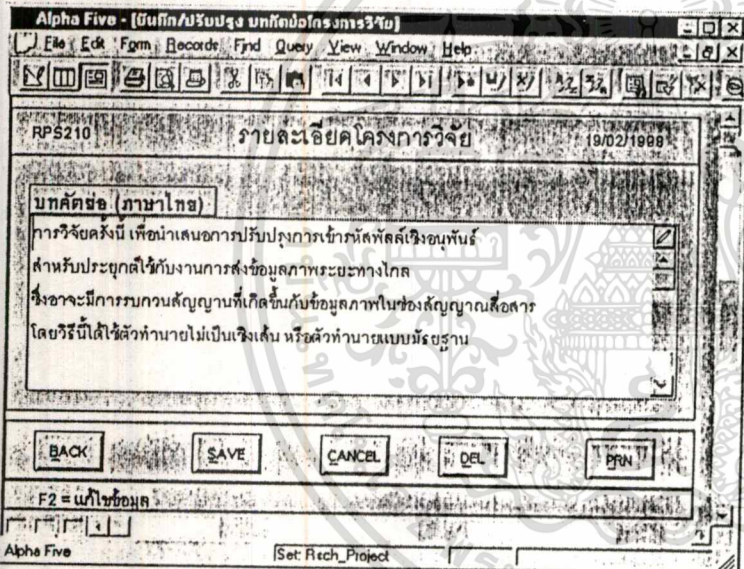 Alpha Five - [บันทึก/ปรับปรุง บทคัดย่อโครงการวิจัย]
File Edit Form Records Find Query View Window Help
RPS210 รายละเอียดโครงการวิจัย 19/02/1998
บทคัดย่อ (ภาษาไทย)
การวิจัยครั้งนี้ เพื่อนำเสนอการปรับปรุงการเข้ารหัสพัลส์เชิงอนุพันธ์
สำหรับประยุกต์ใช้กับงานการส่งข้อมูลภาพระยะทางไกล
ซึ่งอาจจะมีการรบกวนสัญญานที่เกิดขึ้นกับข้อมูลภาพในช่องสัญญาณสื่อสาร
โดยวิธีนี้ได้ใช้ตัวทำนายไม่เป็นเชิงเส้น หรือตัวทำนายแบบมัธยฐาน
BACK SAVE CANCEL DEL PRN
F2 = แก้ไขข้อมูล
Alpha Five Set: Rsch_Project